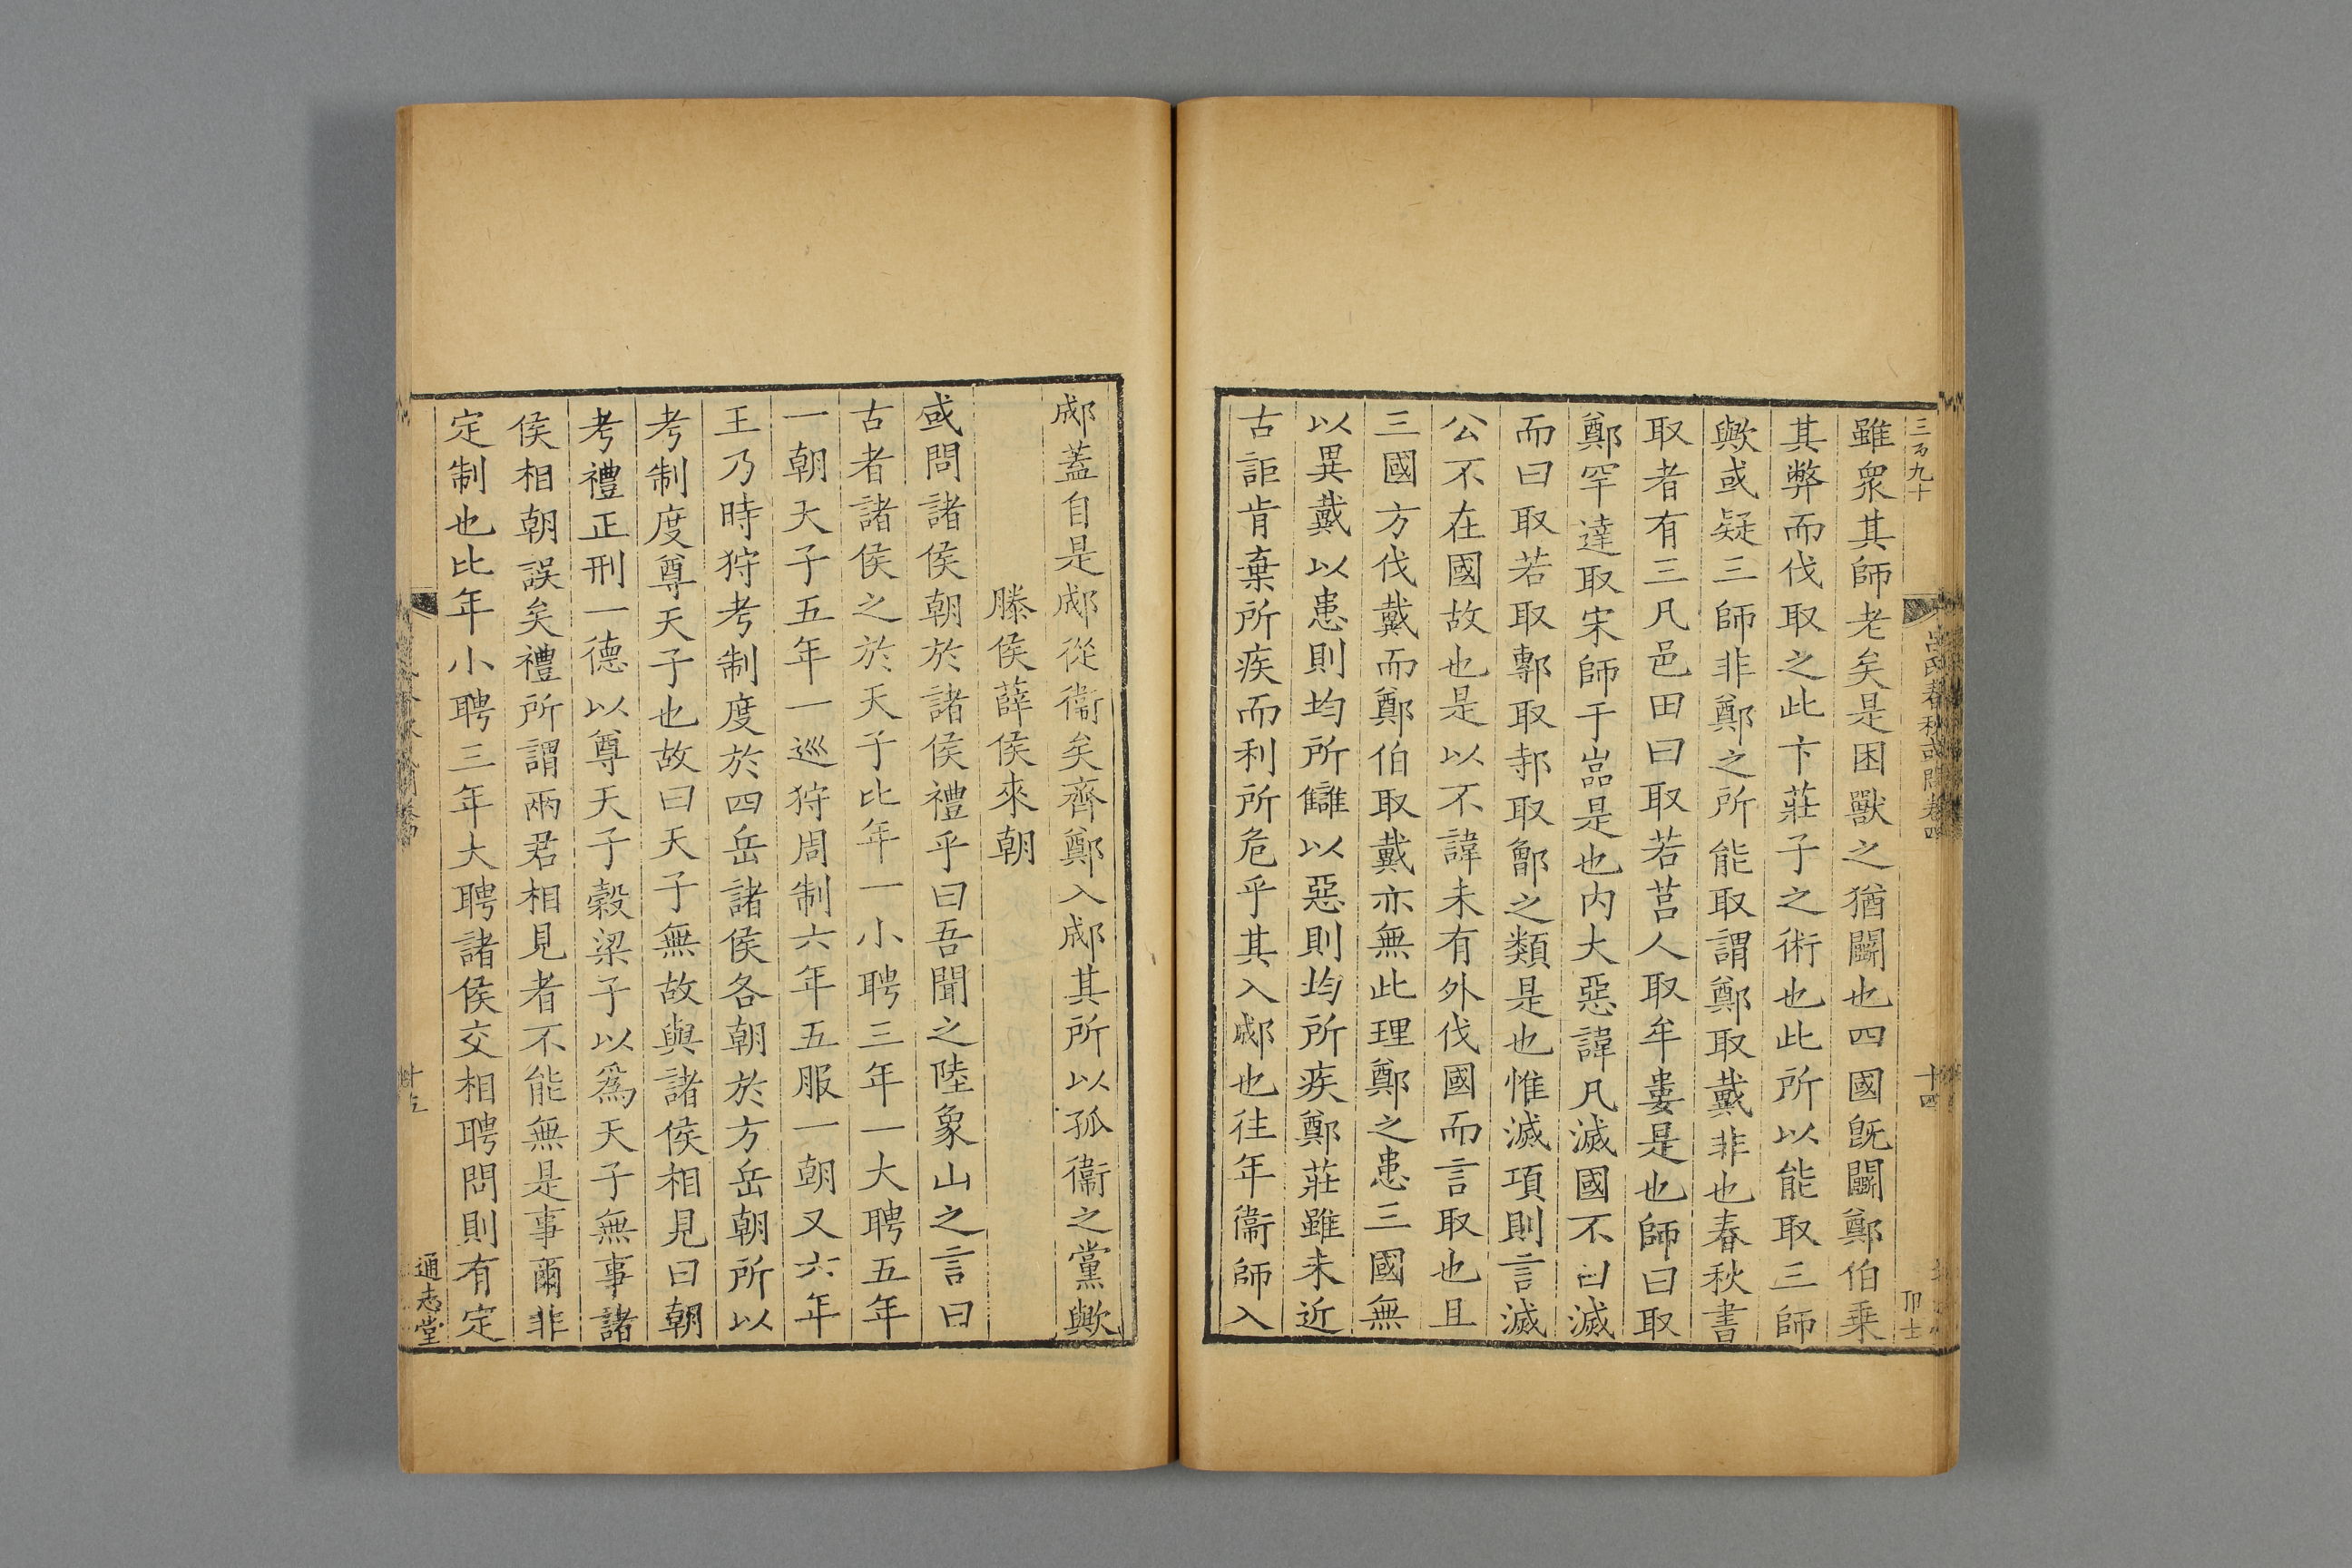 三百九十
呂氏春秋或問卷四
十四
雖衆其師老矣是困獸之猶鬭也四國旣鬭鄭伯乗
其弊而伐取之此卞莊子之術也此所以能取三師
歟或疑三師非鄭之所能取謂鄭取戴非也春秋書
取者有三凡邑田曰取若莒人取牟婁是也師曰取
鄭罕達取宋師于嵓是也内大惡諱凡滅國不曰滅
而曰取若取鄟取邿取鄫之類是也惟滅項則言滅
公不在國故也是以不諱未有外伐國而言取也且
三國方伐戴而鄭伯取戴亦無此理鄭之患三國無
以異戴以患則均所讎以惡則均所疾鄭莊雖未近
古詎肯棄所疾而利所危乎其入郕也往年衞師入
郕蓋自是郕從衞矣齊鄭入郕其所以孤衞之黨歟
滕侯薛侯來朝
或問諸侯朝於諸侯禮乎曰吾聞之陸象山之言曰
古者諸侯之於天子比年一小聘三年一大聘五年
一朝天子五年一巡狩周制六年五服一朝又六年
王乃時狩考制度於四岳諸侯各朝於方岳朝所以
考制度尊天子也故曰天子無故與諸侯相見曰朝
考禮正刑一德以尊天子穀梁子以爲天子無事諸
侯相朝誤矣禮所謂兩君相見者不能無是事爾非
定制也比年小聘三年大聘諸侯交相聘問則有定
通志堂